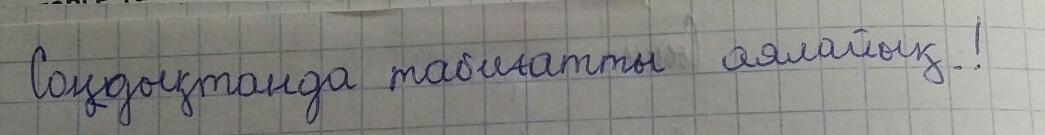 Сондықтанда табиғатты аялайық.!